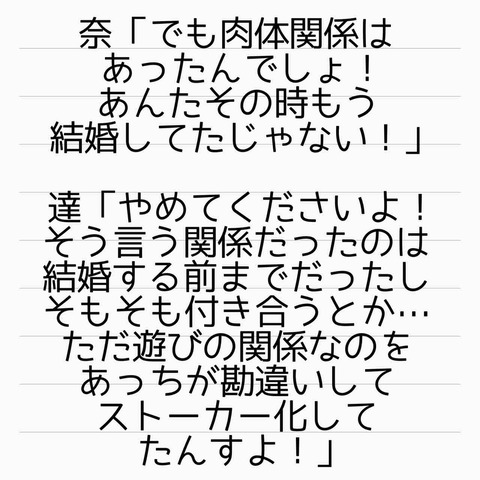 奈「でも肉体関係は
あったんでしょ！
あんたその時もう
結婚してたじゃない！」
達「やめてくださいよ！
そう言う関係だったのは
結婚する前までだったし
そもそも付き合うとか…
ただ遊びの関係なのを
あっちが勘違いして
ストーカー化して
たんすよ！」